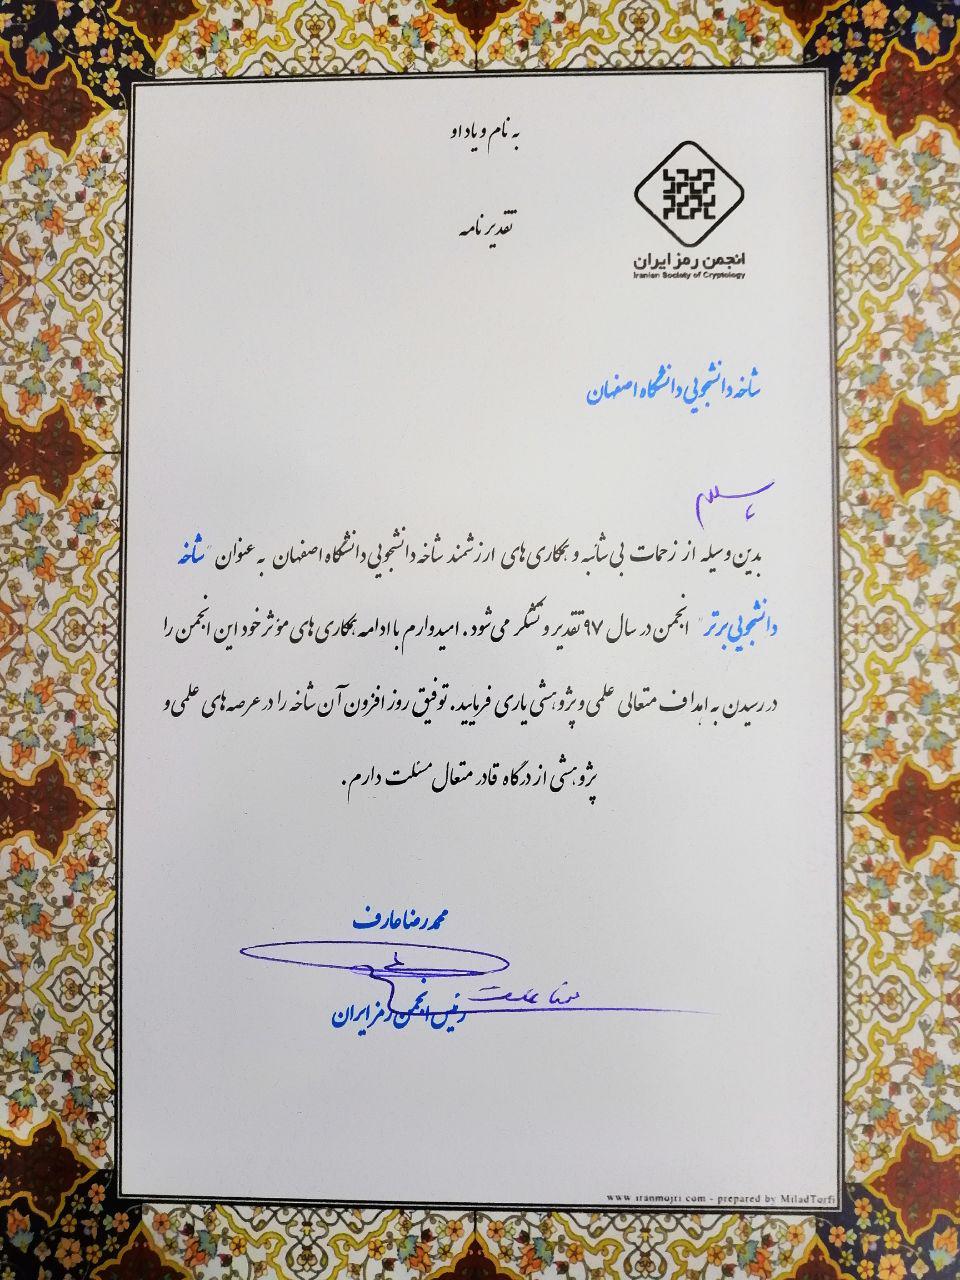 به نام و یاد او
تقدیر نامه
انجمن رمز ایران
Iranian Society of Cryptology
شاخه دانشجویی دانشگاه اصفهان
با سلام
بدین وسیله از زحمات بی شائبه و همکاری های ارزشمند شاخه دانشجویی دانشگاه اصفهان به عنوان "شاخه
دانشجویی برتر" انجمن در سال ۹۷ تقدیر و تشکر می شود. امیدوارم با ادامه همکاری های مؤثر خود این انجمن را
در رسیدن به اهداف متعالی علمی و پژوهشی یاری فرمایید. توفیق روز افزون آن شاخه را در عرصه های علمی و
پژوهشی از درگاه قادر متعال مسئلت دارم.
محمدرضا عارف
رئیس انجمن رمز ایران
www.iranmojri.com - prepared by MiladTorfi